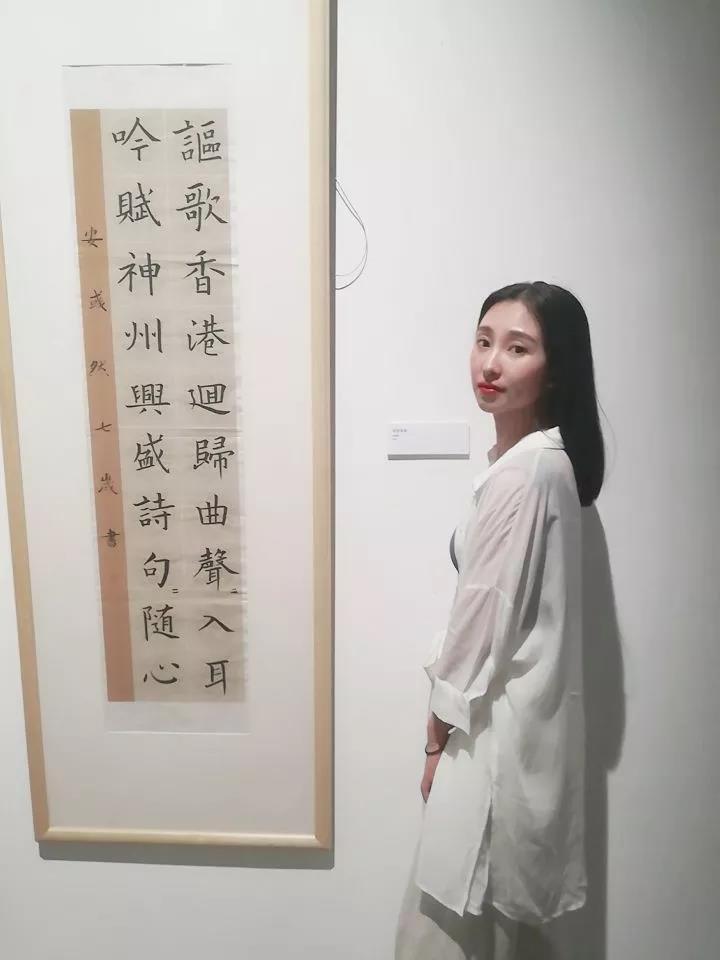 謳歌香港迴歸曲聲〻入耳
吟賦神州興盛詩句〻隨心
安彧然七歲書